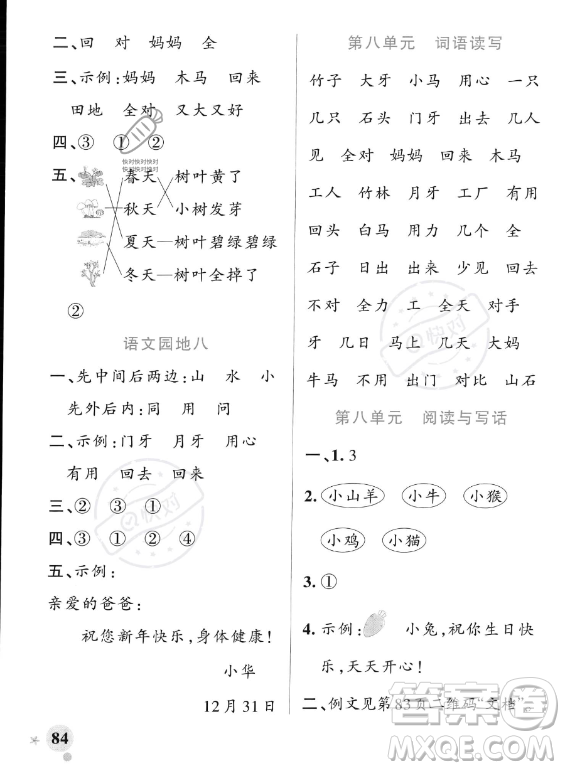 二、回 对 妈妈 全
三、示例:妈妈 木马 回来
田地 全对 又大又好
四、③ ① ②
快对快对快对
快对快对快对
五、春天 树叶黄了
秋天 小树发芽
夏天 树叶碧绿碧绿
冬天 树叶全掉了
②
语文园地八
一、先中间后两边:山 水 小
先外后内:同 用 问
二、示例:门牙 月牙 用心
有用 回去 回来
三、② ③ ①
四、③ ① ② ④
五、示例:
亲爱的爸爸:
祝您新年快乐,身体健康!
小华
12月31日
84
第八单元 词语读写
竹子 大牙 小马 用心 一只
几只 石头 门牙 出去 几人
见 全对 妈妈 回来 木马
工人 竹林 月牙 工厂 有用
回头 大力 马力 用力 全是
石子 日出 出来 少见 回去
不对 全力 工 全天 对手
牙 几日 马上 几天 大妈
牛马 不用 出门 对比 山石
第八单元 阅读与写话
一、1. 3
2. 小山羊 小牛 小猴
小鸡 小猫
3. ①
4. 示例: 小兔,祝你生日快
乐,天天开心!
二、例文见第83页二维码“文档”。
快对
快对
答案圈
MXQE.COM